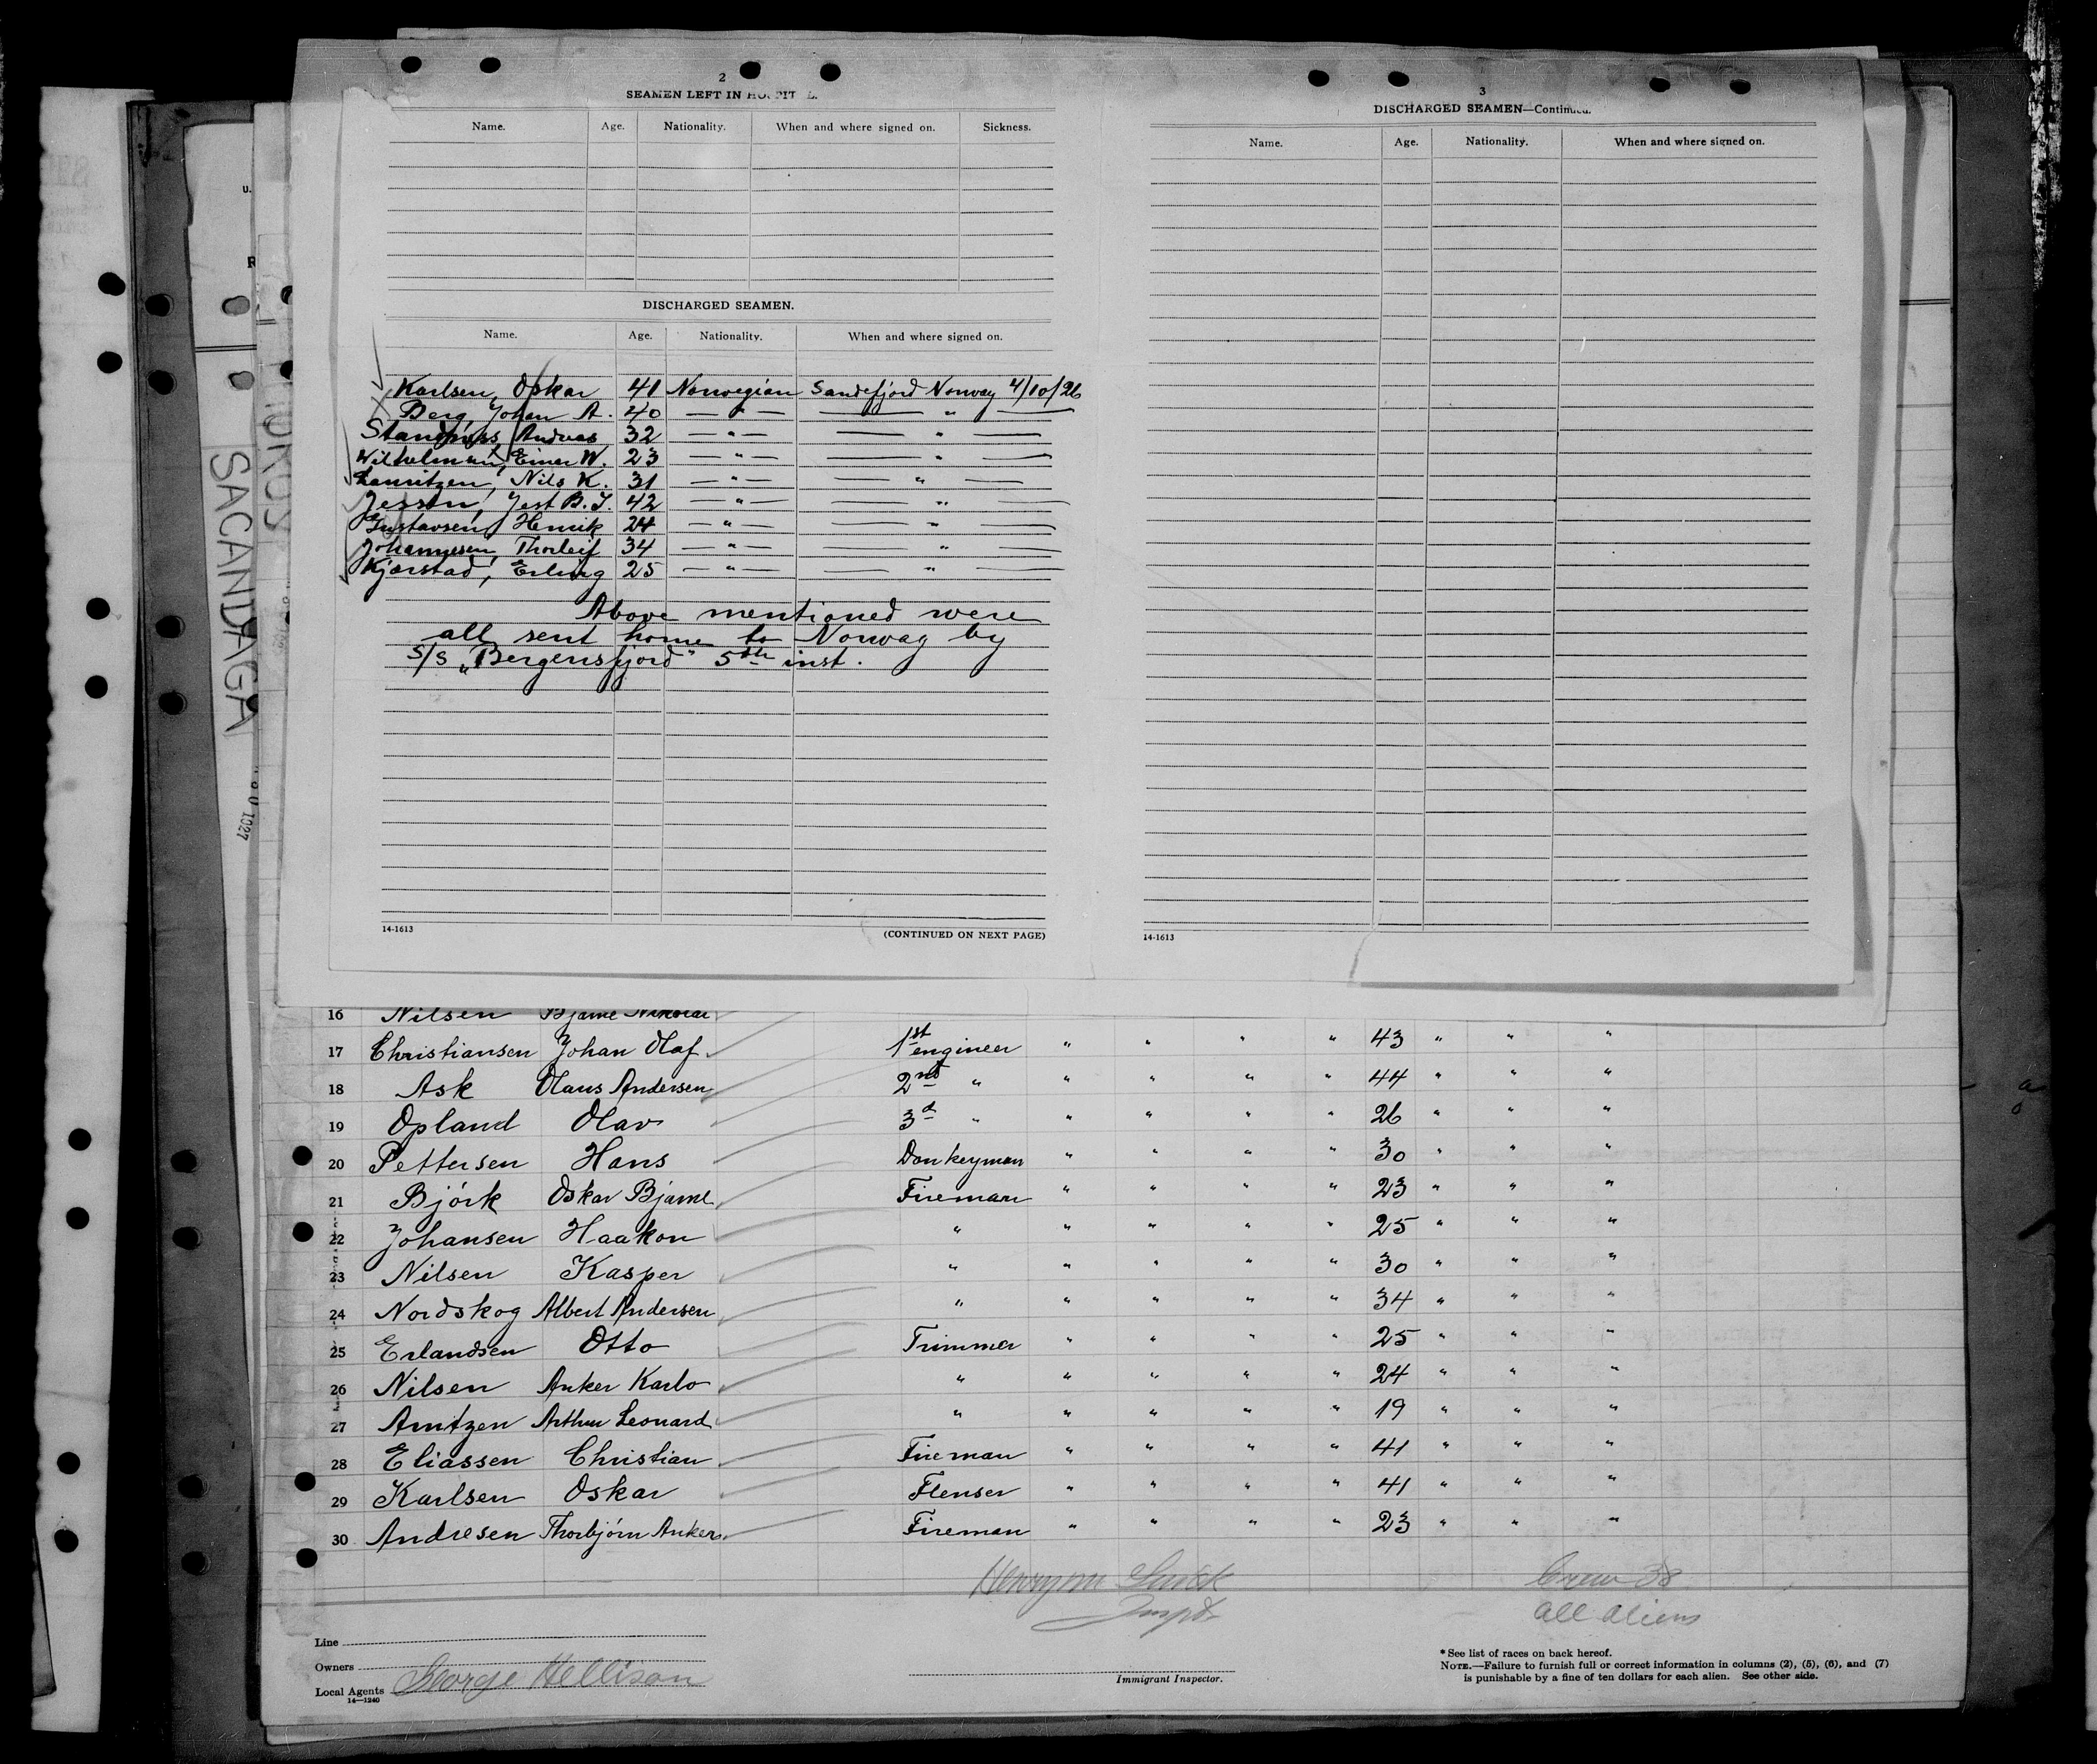 2
SEAMEN LEFT IN HOSPITAL.
Name. Age. Nationality. When and where signed on. Sickness.
DISCHARGED SEAMEN.
Name. Age. Nationality. When and where signed on.
Karlsen, Oskar 41 Norwegian Sandefjord Norway 4/10/26
Berg, Johan A. 40 — " — — " —
Andreas 32 — " — — " —
Wilhelmsen, Einar W. 23 — " — — " —
Lauritzen, Nils K. 31 — " — — " —
Jessen, Jest B. J. 42 — " — — " —
Gustavsen, Henrik 24 — " — — " —
Johannesen, Thorleif 34 — " — — " —
Kjærstad, Erling 25 — " — — " —
Above mentioned were
all sent home to Norway by
S/S „Bergensfjord" 5th inst.
14-1613 (CONTINUED ON NEXT PAGE)
3
DISCHARGED SEAMEN—Continued.
Name. Age. Nationality. When and where signed on.
14-1613
U.
R
SACANDAGA
1927
16 Nilsen Bjarne Nikolai
17 Christiansen Johan Olaf 1st engineer " " " " 43 " " "
18 Ask Olaus Andersen 2nd " " " " " 44 " " "
19 Opland Olav 3d " " " " " 26 " " "
20 Pettersen Hans Donkeyman " " " " 30 " " "
21 Björk Oskar Bjarne Fireman " " " " 23 " " "
22 Johansen Haakon " " " " " 25 " " "
23 Nilsen Kasper " " " " " 30 " " "
24 Nordskog Albert Andersen " " " " " 34 " " "
25 Erlandsen Otto Trimmer " " " " 25 " " "
26 Nilsen Anker Karlo " " " " " 24 " " "
27 Arntzen Arthur Leonard " " " " " 19 " " "
28 Eliassen Christian Fireman " " " " 41 " " "
29 Karlsen Oskar Flenser " " " " 41 " " "
30 Andresen Thorbjörn Anker Fireman " " " " 23 " " "
Crew 38
all aliens
Line
Owners
Local Agents George Hellison
14—1240
Immigrant Inspector.
* See list of races on back hereof.
NOTE.—Failure to furnish full or correct information in columns (2), (5), (6), and (7)
is punishable by a fine of ten dollars for each alien. See other side.